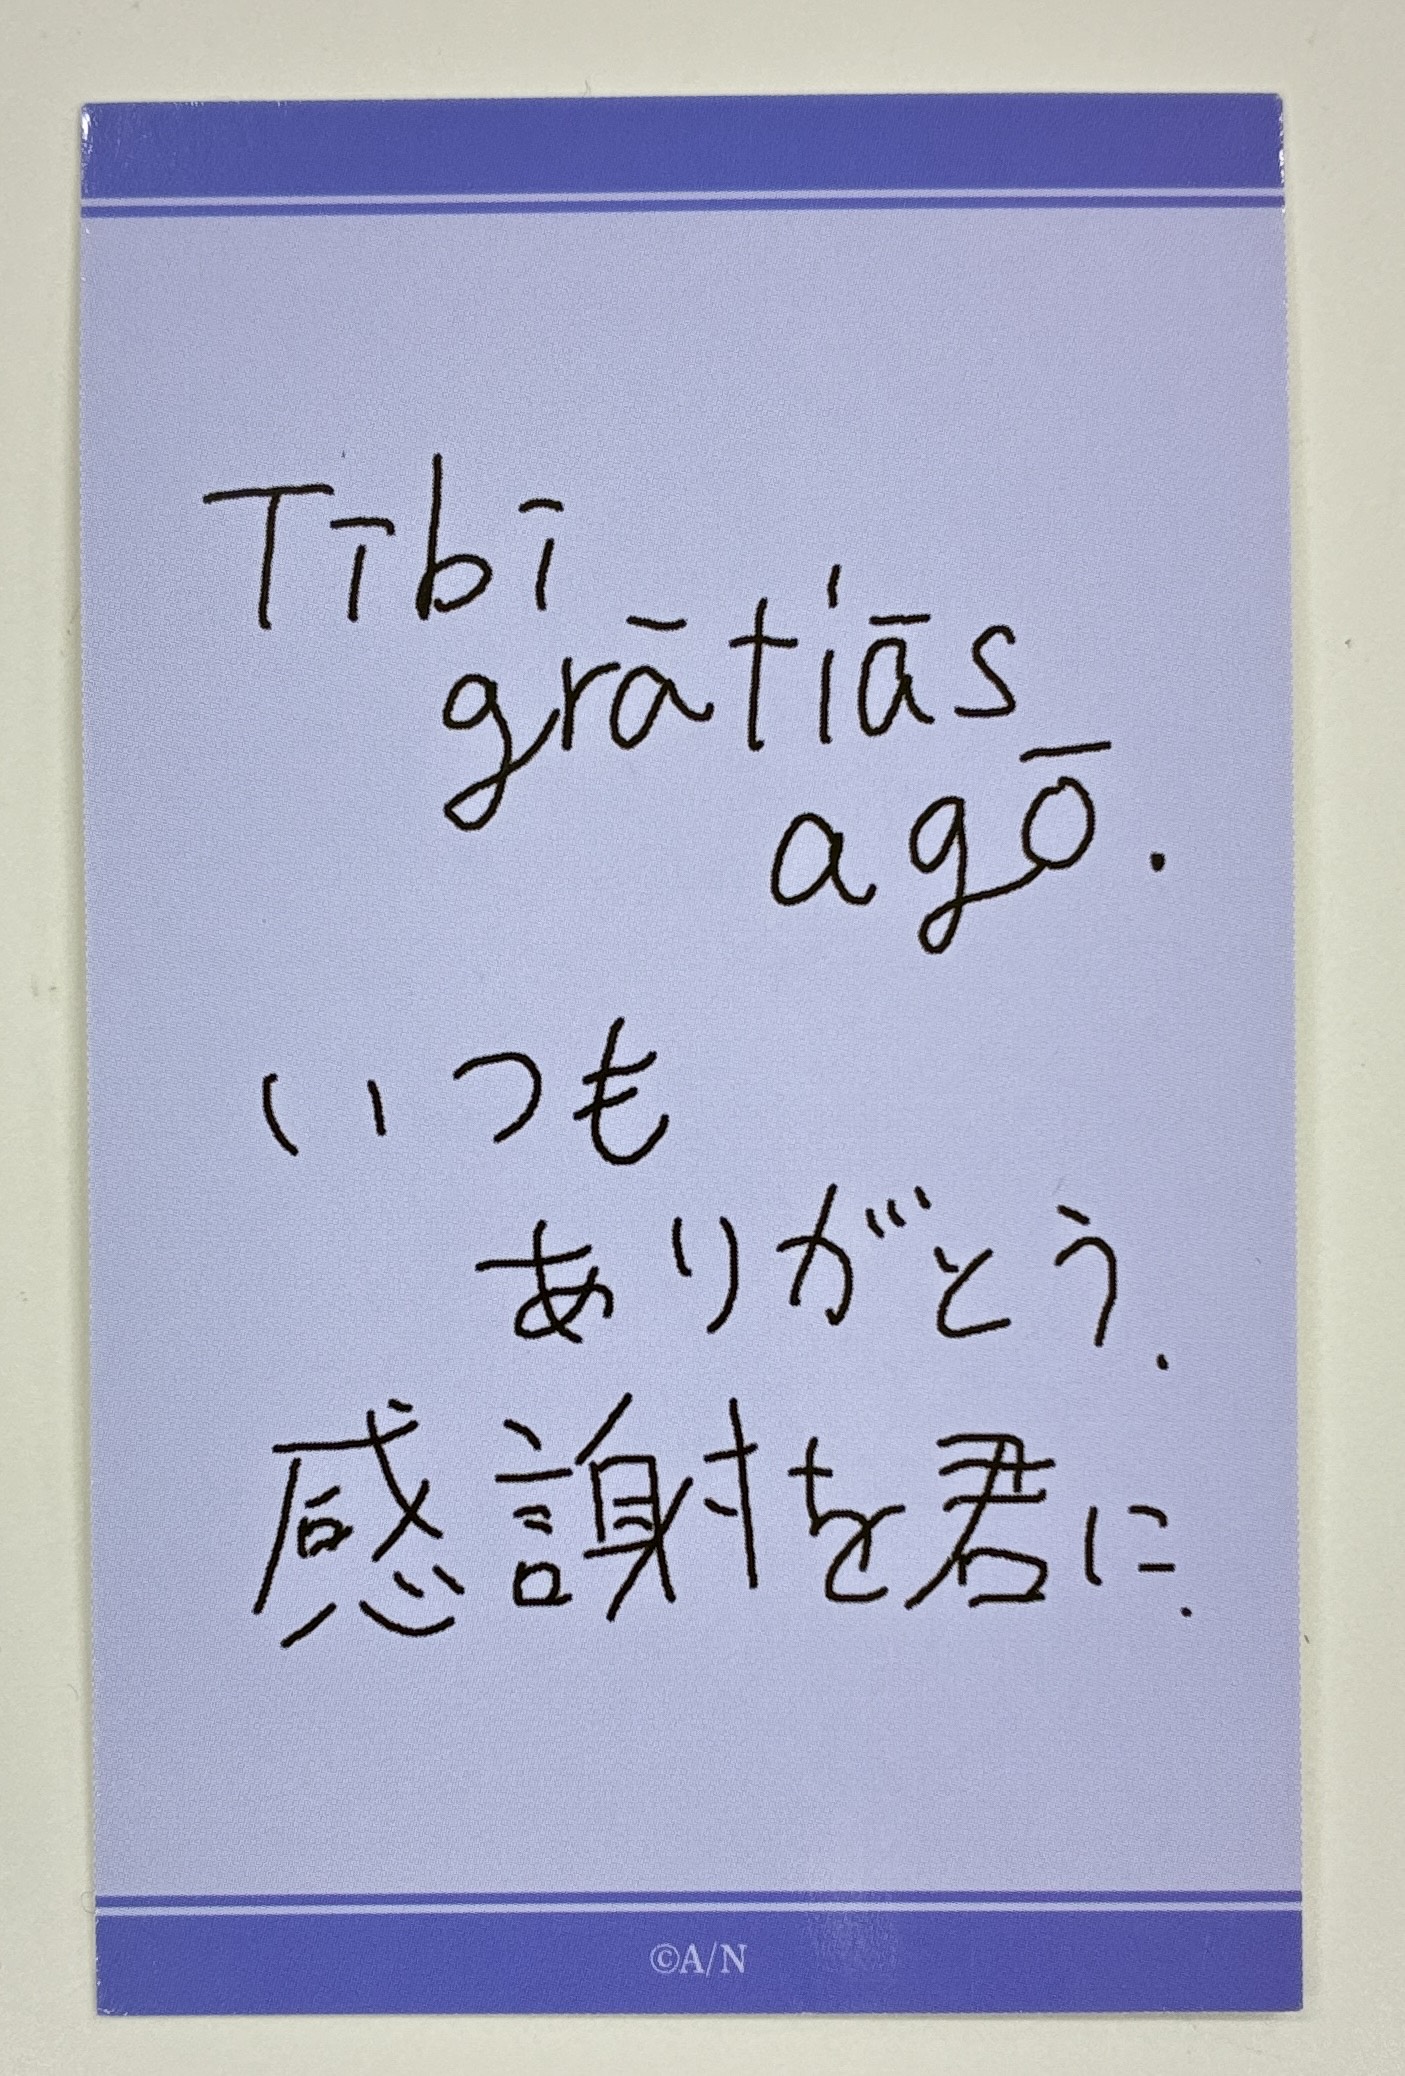 Tībī
grātiās
agō.
いつも
ありがとう.
感謝を君に.
©A/N